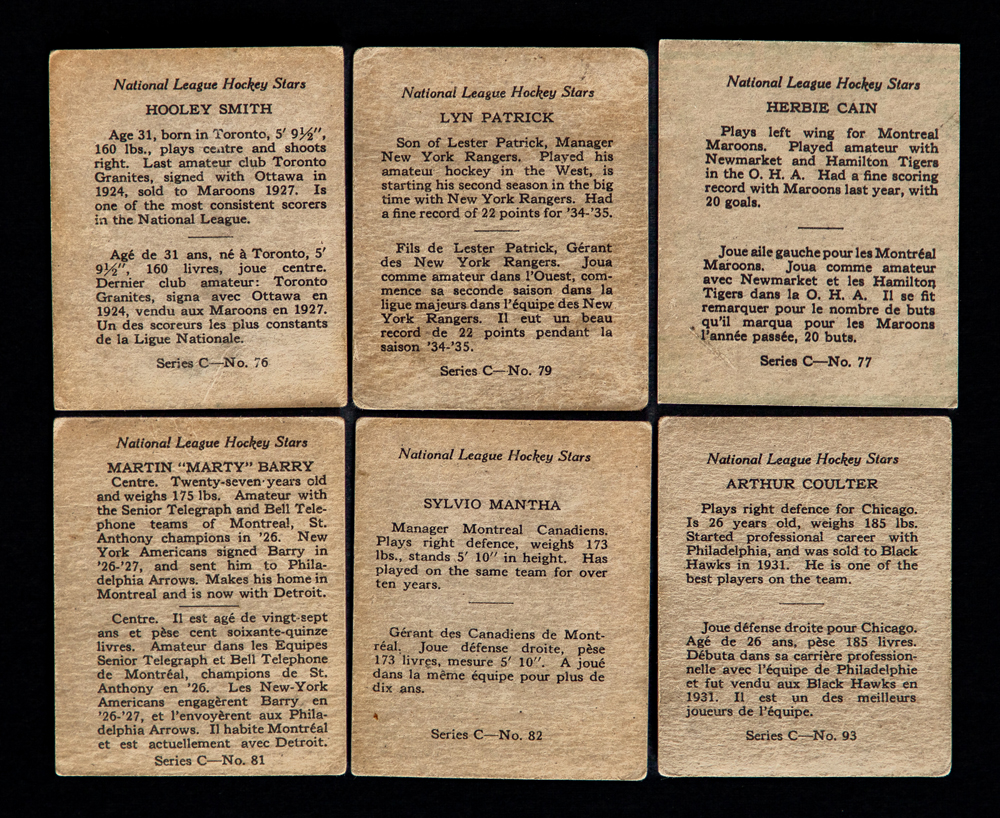 National League Hockey Stars
HOOLEY SMITH
Age 31, born in Toronto, 5' 9½",
160 lbs., plays centre and shoots
right. Last amateur club Toronto
Granites, signed with Ottawa in
1924, sold to Maroons 1927. Is
one of the most consistent scorers
in the National League.
Agé de 31 ans, né à Toronto, 5'
9½", 160 livres, joue centre.
Dernier club amateur: Toronto
Granites, signa avec Ottawa en
1924, vendu aux Maroons en 1927.
Un des scoreurs les plus constants
de la Ligue Nationale.
Series C—No. 76
National League Hockey Stars
LYN PATRICK
Son of Lester Patrick, Manager
New York Rangers. Played his
amateur hockey in the West, is
starting his second season in the big
time with New York Rangers. Had
a fine record of 22 points for '34-'35.
Fils de Lester Patrick, Gérant
des New York Rangers. Joua
comme amateur dans l'Ouest, com-
mence sa seconde saison dans la
ligue majeurs dans l'équipe des New
York Rangers. Il eut un beau
record de 22 points pendant la
saison '34-'35.
Series C—No. 79
National League Hockey Stars
HERBIE CAIN
Plays left wing for Montreal
Maroons. Played amateur with
Newmarket and Hamilton Tigers
in the O. H. A. Had a fine scoring
record with Maroons last year, with
20 goals.
Joue aile gauche pour les Montréal
Maroons. Joua comme amateur
avec Newmarket et les Hamilton
Tigers dans la O. H. A. Il se fit
remarquer pour le nombre de buts
qu'il marqua pour les Maroons
l'année passée, 20 buts.
Series C—No. 77
National League Hockey Stars
MARTIN "MARTY" BARRY
Centre. Twenty-seven years old
and weighs 175 lbs. Amateur with
the Senior Telegraph and Bell Tele-
phone teams of Montreal, St.
Anthony champions in '26. New
York Americans signed Barry in
'26-'27, and sent him to Phila-
delphia Arrows. Makes his home in
Montreal and is now with Detroit.
Centre. Il est agé de vingt-sept
ans et pèse cent soixante-quinze
livres. Amateur dans les Equipes
Senior Telegraph et Bell Telephone
de Montréal, champions de St.
Anthony en '26. Les New-York
Americans engagèrent Barry en
'26-'27, et l'envoyèrent aux Phila-
delphia Arrows. Il habite Montréal
et est actuellement avec Detroit.
Series C—No. 81
National League Hockey Stars
SYLVIO MANTHA
Manager Montreal Canadiens.
Plays right defence, weighs 173
lbs., stands 5' 10" in height. Has
played on the same team for over
ten years.
Gérant des Canadiens de Mont-
réal. Joue défense droite, pèse
173 livres, mesure 5' 10". A joué
dans la même équipe pour plus de
dix ans.
Series C—No. 82
National League Hockey Stars
ARTHUR COULTER
Plays right defence for Chicago.
Is 26 years old, weighs 185 lbs.
Started professional career with
Philadelphia, and was sold to Black
Hawks in 1931. He is one of the
best players on the team.
Joue défense droite pour Chicago.
Agé de 26 ans, pèse 185 livres.
Débuta dans sa carrière profession-
nelle avec l'équipe de Philadelphie
et fut vendu aux Black Hawks en
1931. Il est un des meilleurs
joueurs de l'équipe.
Series C—No. 93